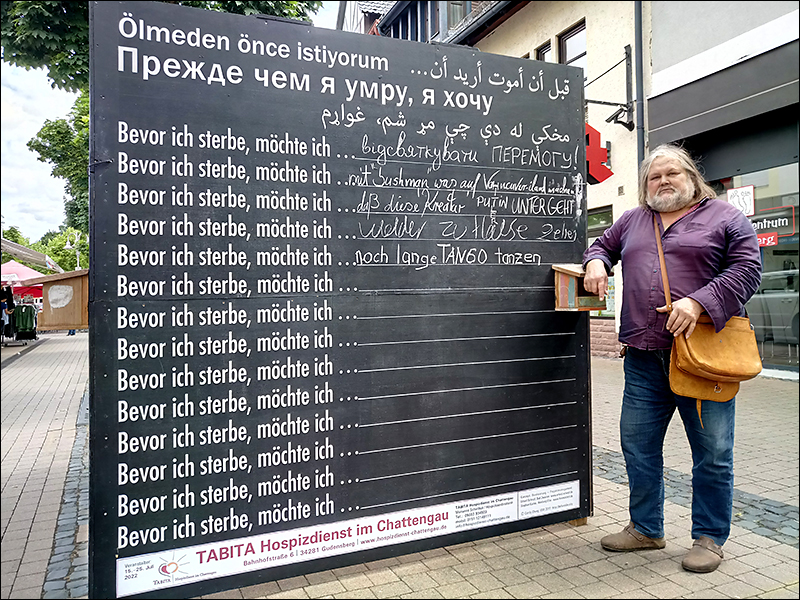 Ölmeden önce istiyorum
قبل أن أموت أريد أن...
Прежде чем я умру, я хочу
مخکې له دې چې مړ شم، غواړم
Bevor ich sterbe, möchte ich ... відсвяткувати ПЕРЕМОГУ!
Bevor ich sterbe, möchte ich ... mit "bushman" was auf
Bevor ich sterbe, möchte ich ... daß diese Kreatur PUTIN UNTERGEHT
Bevor ich sterbe, möchte ich ... wieder zu Hause
Bevor ich sterbe, möchte ich ... noch lange TANGO tanzen
Bevor ich sterbe, möchte ich ...
Bevor ich sterbe, möchte ich ...
Bevor ich sterbe, möchte ich ...
Bevor ich sterbe, möchte ich ...
Bevor ich sterbe, möchte ich ...
Bevor ich sterbe, möchte ich ...
Bevor ich sterbe, möchte ich ...
Bevor ich sterbe, möchte ich ...
Veranstalter
TABITA
15.-29. Juli
2022
TABITA Hospizdienst im Chattengau
Bahnhofstraße 6 | 34281 Gudensberg | www.hospizdienst-chattengau.de
TABITA Hospizdienst im Chattengau
zentrum
berg